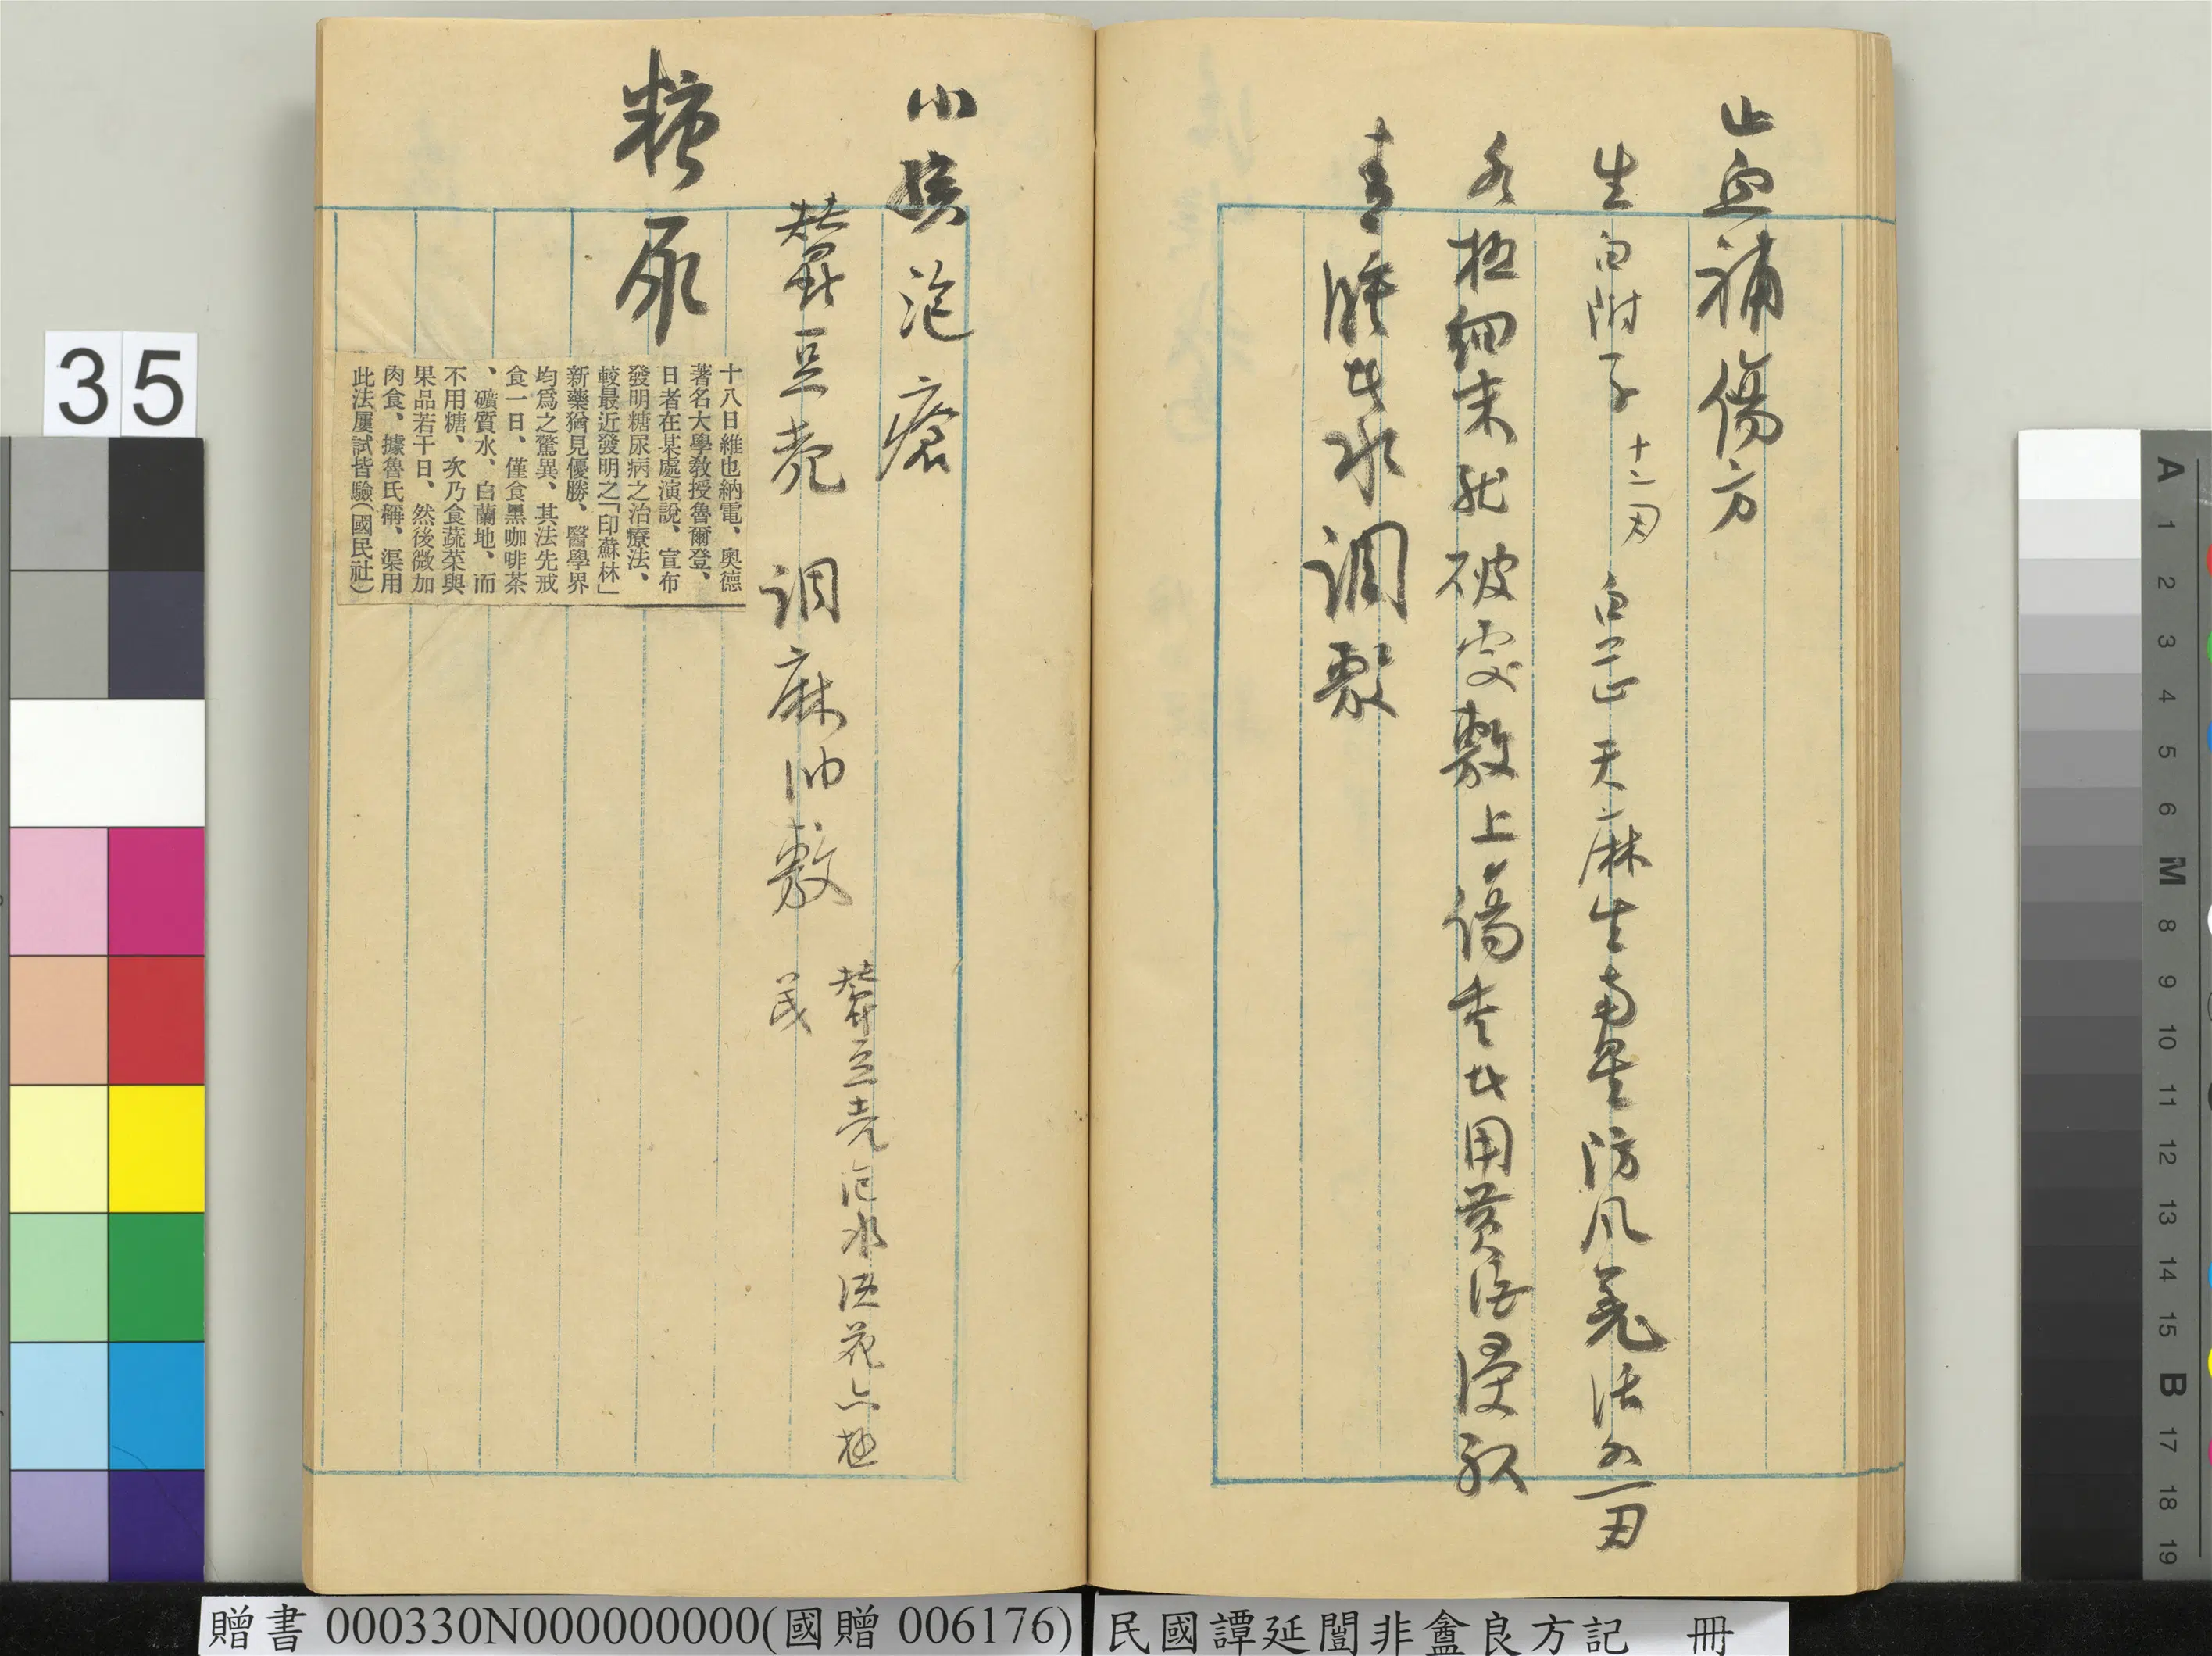 止血補傷方
生白附子 十二刃 白芷 天麻 生南星 防風 羌活 各一刃
各極細末就破處敷上傷重者用黃酒浸服
青腫者水調敷
小孩泡瘡
蠶豆壳 調麻油敷
蠶豆壳泡水洗花亦極
茂
糖尿
十八日維也納電、奧德
著名大學教授魯爾登、
日者在某處演說、宣布
發明糖尿病之治療法、
較最近發明之「印蘇林」
新藥猶見優勝、醫學界
均爲之驚異、其法先戒
食一日、僅食黑咖啡茶
、礦質水、白蘭地、而
不用糖、次乃食蔬菜與
果品若干日、然後微加
肉食、據魯氏稱、渠用
此法屢試皆驗(國民社)
35
贈書 000330N000000000(國贈 006176)
民國譚延闓非盦良方記 冊
A 1 2 3 4 5 6 M 8 9 10 11 12 13 14 15 B 17 18 19